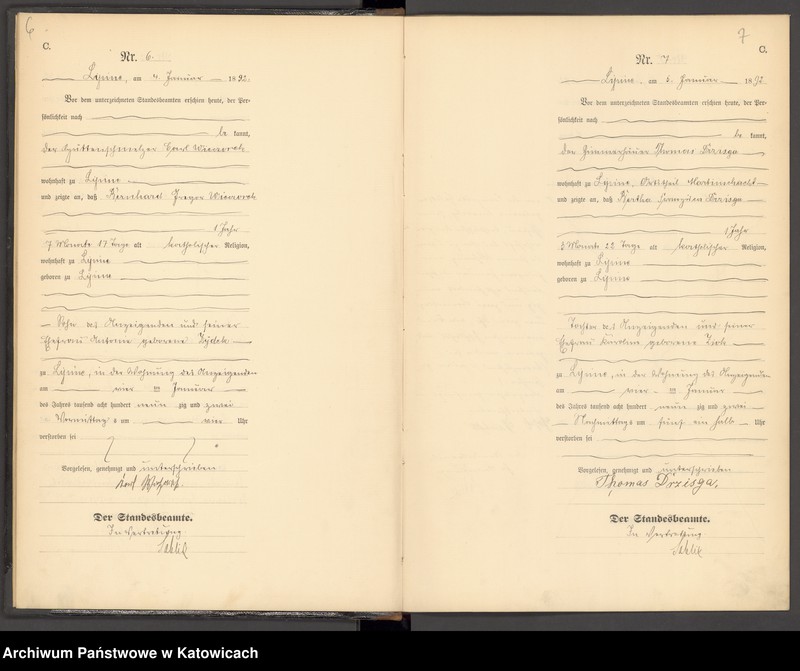 6
C.
Nr. 6.
Lipine, am 4. Januar 1892.
Vor dem unterzeichneten Standesbeamten erschien heute, der Per-
sönlichkeit nach
be kannt,
der Hüttenschmelzer Carl
wohnhaft zu Lipine
und zeigte an, daß Bernhard Gregor
1 Jahr
7 Monate 17 Tage alt katholischer Religion,
wohnhaft zu Lipine
geboren zu Lipine
Sohn des Anzeigenden und seiner
Ehefrau Antonie geborene
zu Lipine, in der Wohnung des Anzeigenden
am vier ten Januar
des Jahres tausend acht hundert neun zig und zwei
Vormittag s um vier Uhr
verstorben sei
Vorgelesen, genehmigt und unterschrieben
Der Standesbeamte.
In Vertretung
7
C.
Nr. 7
Lipine, am 5. Januar 1892
Vor dem unterzeichneten Standesbeamten erschien heute, der Per-
sönlichkeit nach
be kannt,
der Zimmerhäuer Thomas Drzisga
wohnhaft zu Lipine, Ortstheil Martinschacht
und zeigte an, daß Bertha Drzisga
1 Jahr
3 Monate 22 Tage alt katholischer Religion,
wohnhaft zu Lipine
geboren zu Lipine
Tochter des Anzeigenden und seiner
Ehefrau Karoline geborene
zu Lipine, in der Wohnung des Anzeigenden
am vier ten Januar
des Jahres tausend acht hundert neun zig und zwei
Nachmittags um fünf ein halb Uhr
verstorben sei
Vorgelesen, genehmigt und unterschrieben
Thomas Drzisga.
Der Standesbeamte.
In Vertretung
Archiwum Państwowe w Katowicach